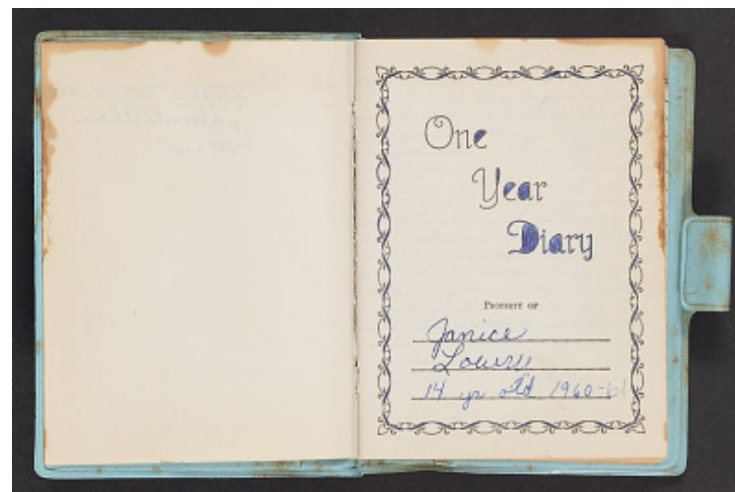 One
Year
Diary
PROPERTY OF
Janice
Lowry
14 yr old 1960-61